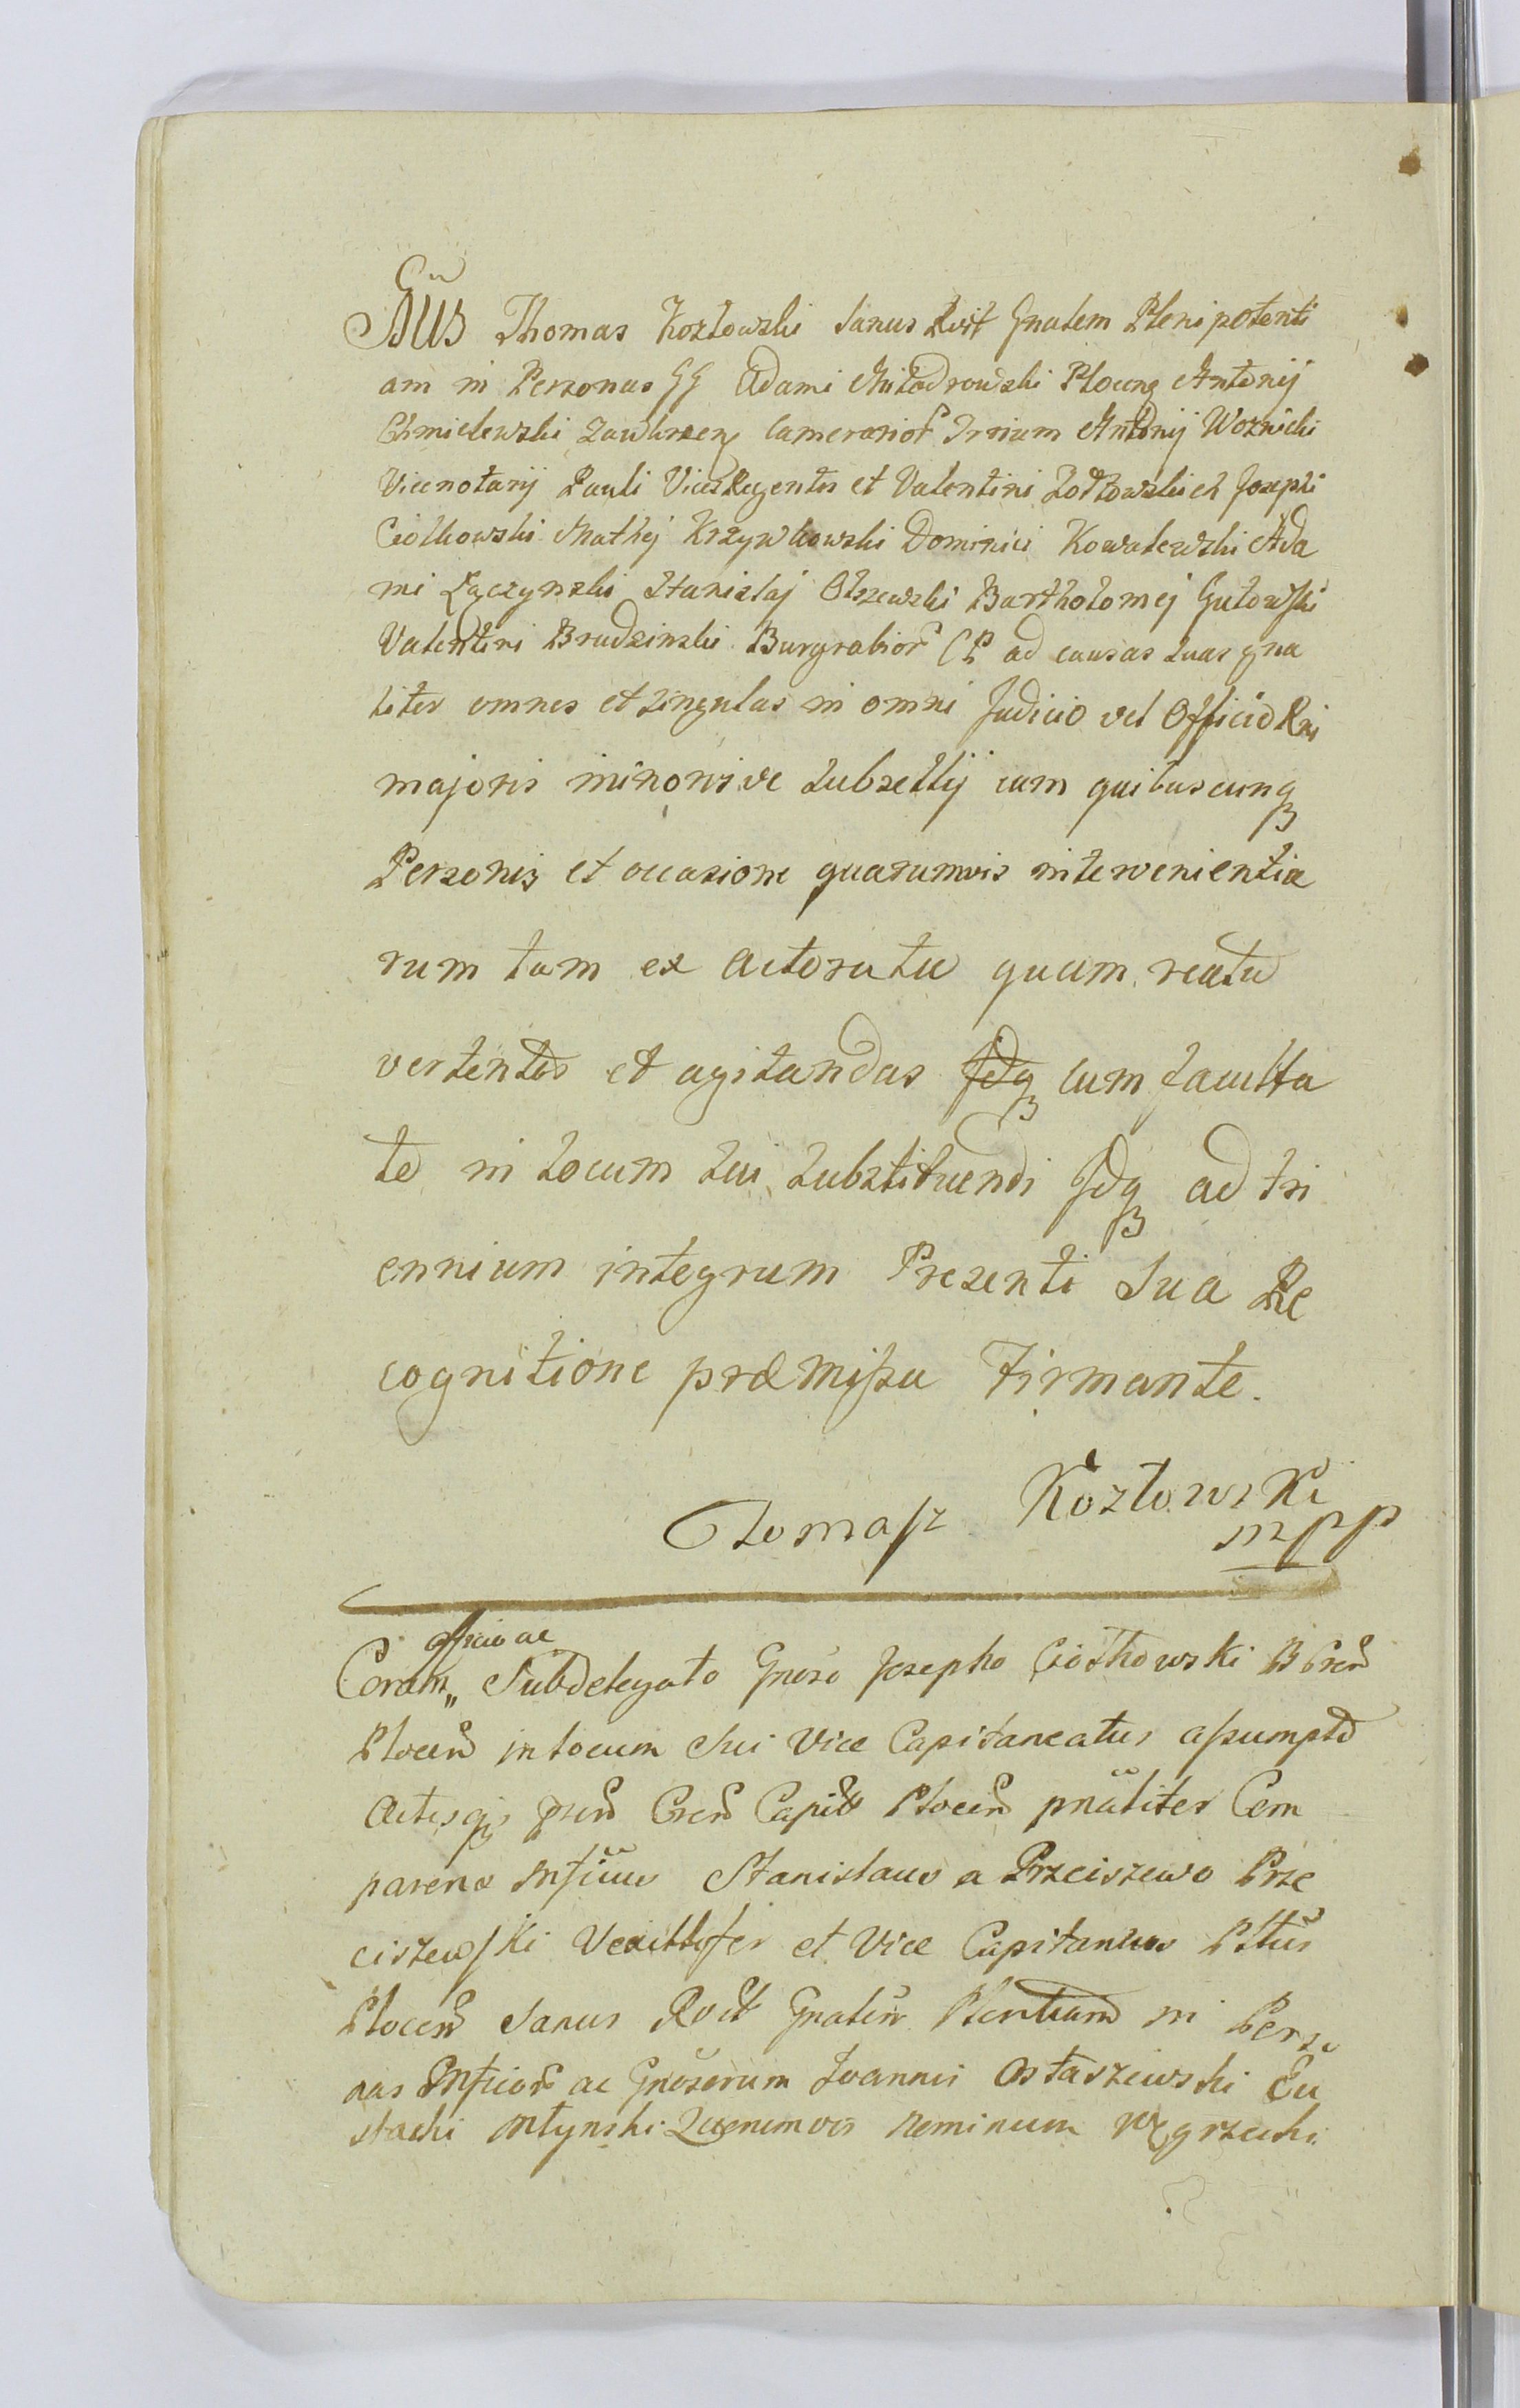 Gnus Thomas Kozłowski Sanus Rvit Gnalem Plenipotenti
am in Personas GG Adami Miłodrowski Plocens Antonij
Chmielewski Zawkrzen Camerariors Trrium Antonij Woznicki
Vicenotarij Pauli Vices Regentis et Valentini Zołtowskich Josephi
Ciołkowski Mathej Krzywkowski Dominici Kowalewski Ada
mi Łączynski Stanislaj Olszewski Bartholomej Gutowski
Valentini Brudzinski Burgrabior CP ad causas suas gna
liter omnes et singulas in omni Judicio vel Officio Rni
majoris minorisve Subsellij cum quibuscunq
Personis et occasione quarumvis intervenientia
rum tam ex actoratu quam reatu
vertentes et agitandas Idq cum faculta
te in Locum Sui Substituendi Idq ad tri
ennium integrum Presenti Sua Re
cognitione præmissa Firmante.
Tomasz Kozłowski
mpp
officio ac
Coram „ Subdelegato Gnoso Josepho Ciołkowski B Cren
Plocen in locum Sui Vice Capitaneatus assumpto
Actisq pren Cren Capit Plocen pnaliter Com
parens Mficus Stanislaus a Przeciszewo Prze
ciszewski Vexillifer et Vice Capitaneus Pltus
Plocen Sanus Rvit Gnalem Plentiam in Perso
nas Mficor ac Gnosorum Joannis Ostaszewski Eu
stachi Młynski Quenimvis Neminum Węgrzecki